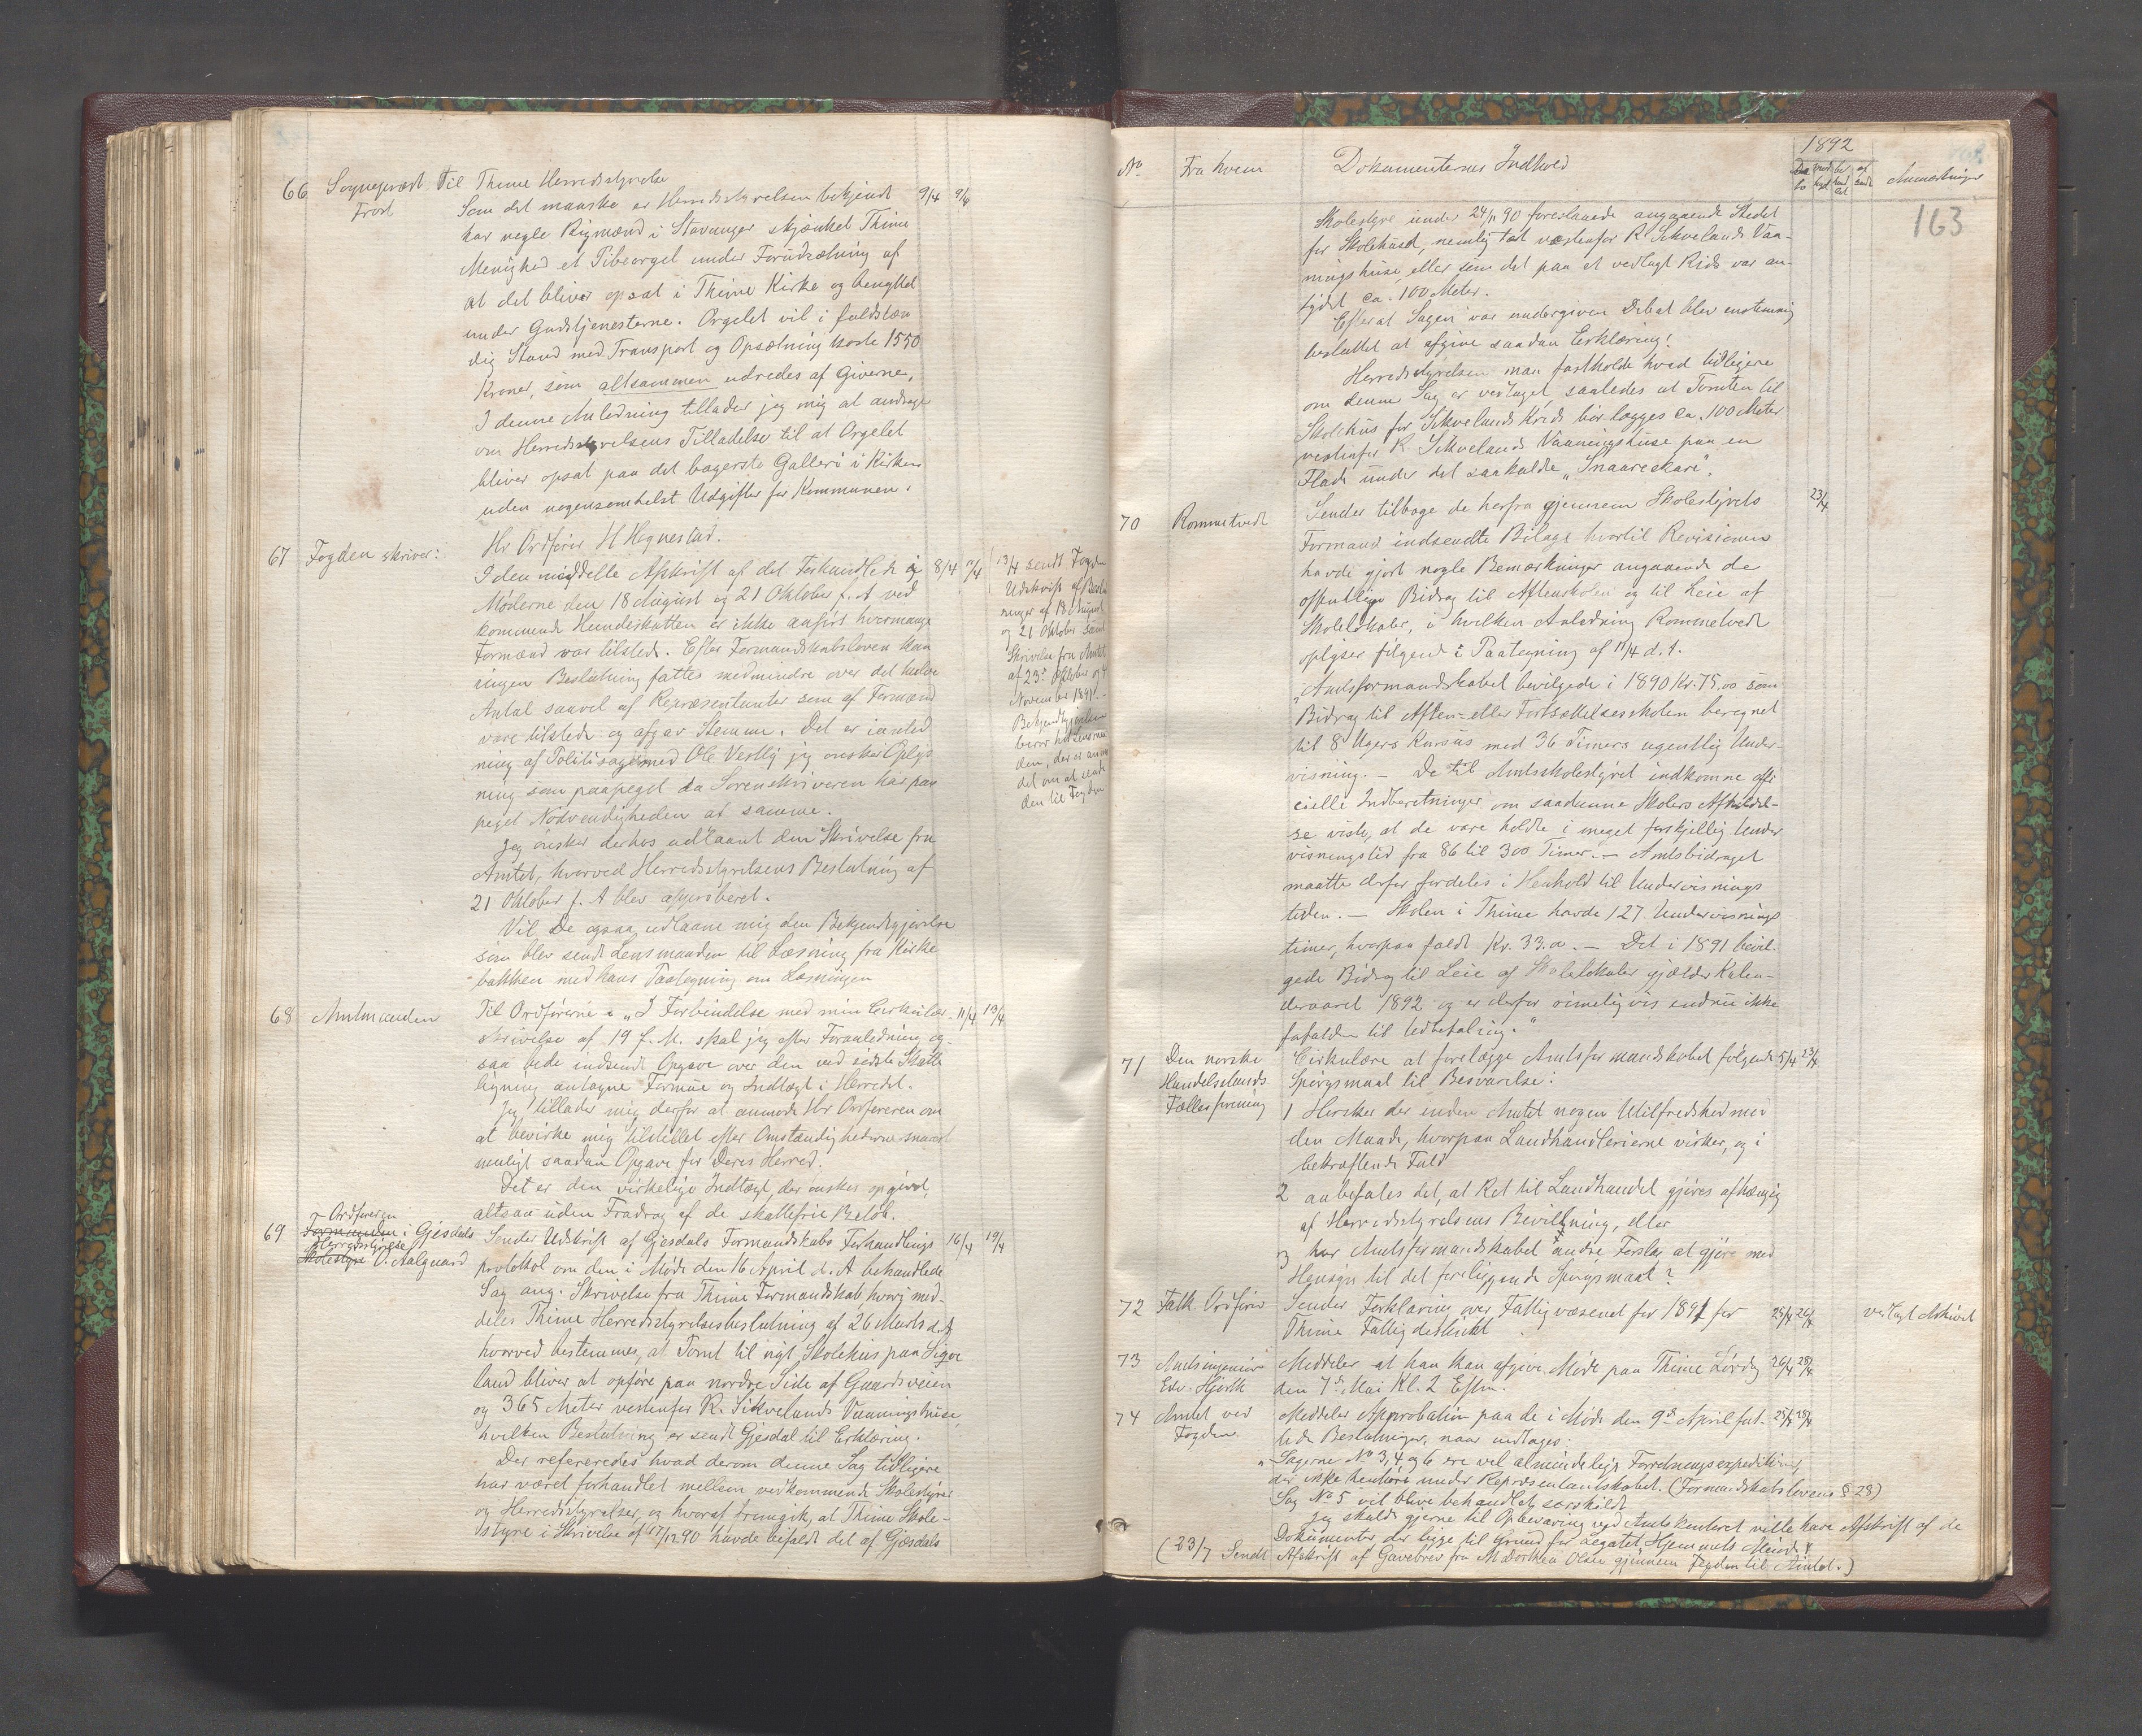 66 Sogneprest Frost
Til Thime Herredsstyrelse
Som det maaske er Herredsstyrelsen bekjendt 9/4 9/6
har nogle Rigmænd i Stavanger skjænket Thime
Menighed et Pibeorgel under Forudsætning af
at det bliver opsat i Thime Kirke og benyttet
under Gudstjenesterne. Orgelet vil i fuldstæn
dig Stand med Transport og Opsætning koste 1550
Kroner, som altsammen udredes af Giverne,
I denne Anledning tillader jeg mig at andrage
om Herredsstyrelsens Tilladelse til at Orgelet
bliver opsat paa det bagerste Galleri i Kirken
uden nogensomhelst Udgifter for Kommunen.
67 Fogden skriver:
Hr Ordfører H Hognestad.
I den meddelte Afskrift af det Forhandlede i 8/4
Møderne den 18 August og 21 Oktober f. A ved
kommende Hundeskatten er ikke anført hvormange
Formænd var tilsted. Efter Formandskabsloven kan
ingen Beslutning fattes medmindre over det halve
Antal saavel af Repræsentanter som af Formænd
vare tilstede og afgav Stemme. Det er i anled
ning af Politisagen med Ole Vestly jeg ønsker Oplys
ning som paapeget da Sorenskriveren har paa
peget Nødvendigheden af samme.
Jeg ønsker derhos udlaant den Skrivelse fra
Amtet, hvorved Herredsstyrelsens Beslutning af
21 Oktober f. A blev approberet.
Vil De ogsaa udlaane mig den Bekjendtgjørelse
som blev sendt Lensmanden til Læsning fra Kirke
bakken med hans Paategning om Læsningen
13/4 sendt Fogden
Udskrift af Beslut
ninger af 18 August
og 21 Oktober samt
Skrivelse fra Amtet
af 23de Oktober og 4
November 1891.
Bekjendtgjørelsen
beror hos Lensman
den, der er anmo
det om at sende
den til Fogden
68 Amtmanden
Til Ordførerne: „I Forbindelse med min Cirkulær- 11/4 13/4
skrivelse af 19 f. M. skal jeg efter Foranledning og
saa bede indsendt Opgave over den ved sidste Skatte
ligning antagne Formue og Indtægt i Herredet.
Jeg tillader mig derfor at anmode Hr Ordføreren om
at bevirke mig tilstillet efter Omstændighederne snarest
muligt saadan Opgave for Deres Herred.
Det er den virkelige Indtægt, der ønskes opgivet,
altsaa uden Fradrag af de skattefrie Beløb.
Ordføreren
69 Formanden i Gjesdals
Herredsstyrelse
Skolestyre O. Aalgaard
Sender Udskrift af Gjesdals Formandskabs Forhandlings 16/4 19/4
protokol om den i Møde den 16 April d. A behandlede
Sag ang. Skrivelse fra Thime Formandskab, hvori med-
deles Thime Herredsstyrelsesbeslutning af 26 Marts d. A
hvorved bestemmes, at Tomt til nyt Skolehus paa Sigve
land bliver at opføre paa nordre Side af Gaardsveien
og 365 Meter vestenfor R. Sikvelands Vaaningshuse,
hvilken Beslutning er sendt Gjesdal til Erklæring.
Der refereredes hvad derom denne Sag tidligere
har været forhandlet mellem vedkommende Skolestyrer
og Herredsstyrelser, og hvoraf fremgik, at Thime Skole-
styre i Skrivelse af 17/12 90 havde bifaldt det af Gjesdals
No Fra hvem Dokumenternes Indhold 1892 Anmærkninger
163
Skolestyre under 24/11 90 foreslaaede angaaende Stedet
for Skolehuset, nemlig tæt vestenfor R. Sikvelands Vaa-
ningshuse, eller som det paa et vedlagt Rids var an-
tydet ca. 100 Meter.
Efterat Sagen var undergiven Debat blev enstemmig
besluttet at afgive saadan Erklæring:
Herredsstyrelsen maa fastholde hvad tidligere
om denne Sag er vedtaget saaledes at Tomten til
Skolehus for Sikvelands Kreds bør lægges ca. 100 Meter
vestenfor R Sikvelands Vaaningshuse paa en
Flade under det saakaldte „Snaareskare".
70 Rommetvedt
Sender tilbage de herfra gjennem Skolestyrets 23/4
Formand indsendte Bilage hvortil Revisionen
havde gjort nogle Bemærkninger angaaende de
offentlige Bidrag til Aftenskolen og til Leie af
Skolelokaler, i hvilken Anledning Rommetvedt
oplyser følgend i Paategning af 11/4 d. A.
„Amtsformandskabet bevilgede i 1890 Kr. 75,00 som
Bidrag til Aften- eller Fortsættelsesskolen beregnet
til 8 Ugers Kursus med 36 Timers ugentlig Under-
visning. — De til Amtsskolestyret indkomne offi
cielle Indberetninger om saadanne Skolers Afholdel-
se viste, at de vare holdte i meget forskjellig Under
visningstid fra 86 til 300 Timer. — Amtsbidraget
maatte derfor fordeles i Henhold til Undervisnings
tiden. — Skolen i Thime havde 127 Undervisnings
timer, hvorpaa faldt Kr. 33.00. — Det i 1891 bevil-
gede Bidrag til Leie af Skolelokaler gjælder Kalen-
deraaret 1892 og er derfor rimeligvis endnu ikke
forfalden til Udbetaling."
71 Den norske
Handelsstands
Fællesforening
Cirkulære at forelægge Amtsformandskabet følgende 5/4 23/4
Spørgsmaal til Besvarelse:
1 Hersker der inden Amtet nogen Utilfredshed med
den Maade, hvorpaa Landhandlerierne virker, og i
bekræftende Fald
2 anbefales det, at Ret til Landhandel gjøres afhængig
af Herredsstyrelsens Bevillning, eller
3 har Amtsformandskabet andre Forslag at gjøre med
Hensyn til det foreliggende Spørgsmaal?
72 Falk Ordfører
Sender Forklaring over Fattigvæsenet for 1891 for 25/4 26/4 vedlagt Arkivet
Thime Fattigdistrikt
73 Amtsingeniør
Edv. Hjorth
Meddeler at han kan afgive Møde paa Thime Lørdag 26/4 28/4
den 7de Mai Kl. 2 Eftm.
74 Amtet ved
Fogden.
Meddeler Approbation paa de i Møde den 9de April fat- 25/4 28/4
tede Beslutninger, naar undtages:
„Sagerne No 3, 4 og 6 ere vel almindelige Forretningsexpeditioner,
der ikke henhøre under Repræsentantskabet. (Formandskabslovens § 28)
Sag No 5 vil blive behandlet særskildt
Jeg skulde gjerne til Opbevaring ved Amtskontoret ville have Afskrift af de
Dokumenter der ligge til Grund for Legatet Hjemmets Minde"
(23/7 Sendt Afskrift af Gavebrev fra M Dorthea Olsen gjennem Fogden til Amtet.)